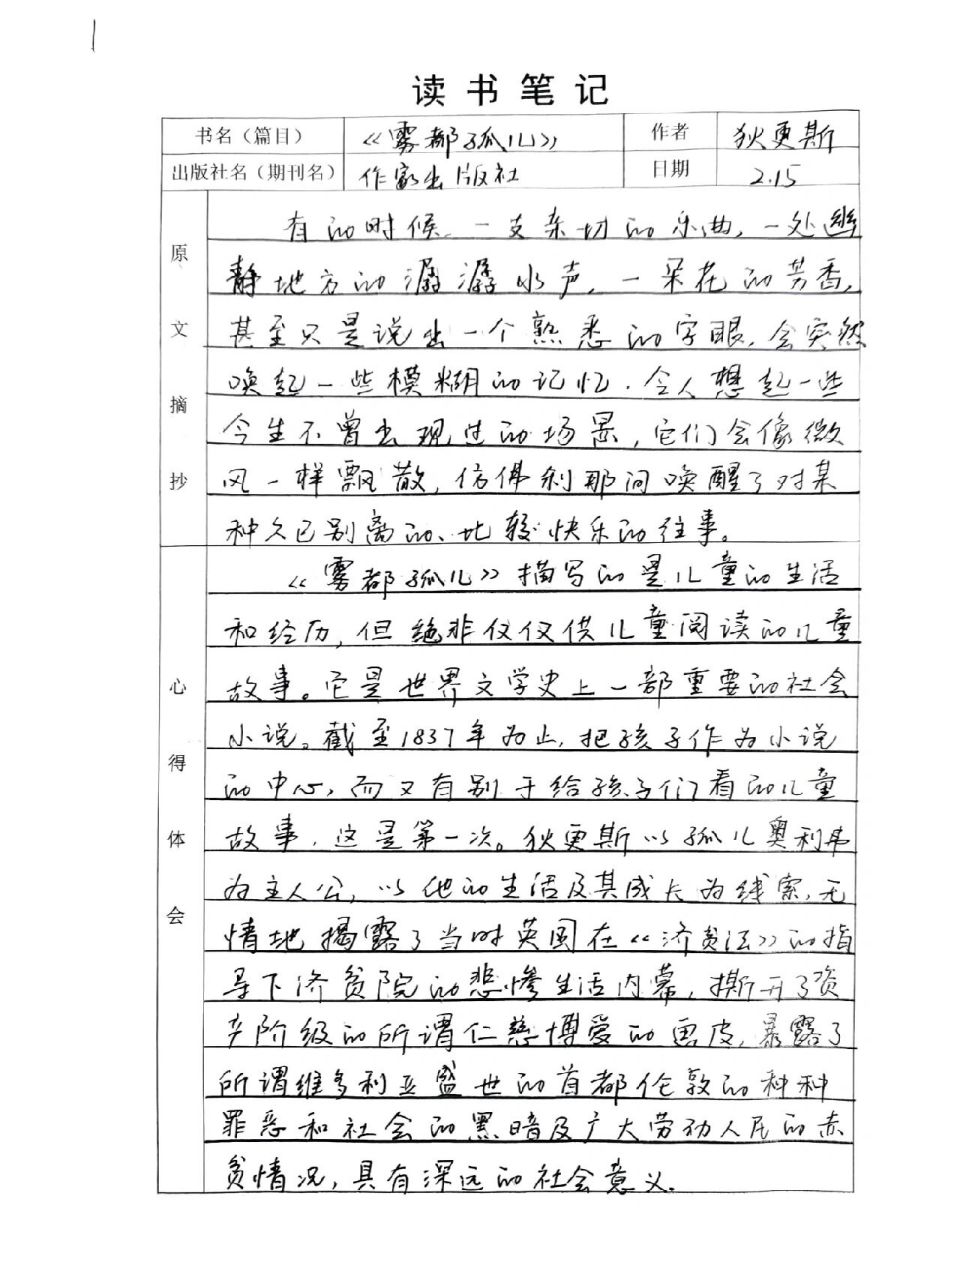 读书笔记
书名（篇目） 《雾都孤儿》 作者 狄更斯
出版社名（期刊名） 作家出版社 日期 2.15
原文摘抄
有的时候，一支亲切的乐曲，一处幽
静地方的潺潺水声，一朵花的芳香，
甚至只是说出一个熟悉的字眼，会突然
唤起一些模糊的记忆，令人想起一些
今生不曾出现过的场景，它们会像微
风一样飘散，仿佛刹那间唤醒了对某
种久已别离的、比较快乐的往事。
心得体会
《雾都孤儿》描写的是儿童的生活
和经历，但绝非仅仅供儿童阅读的儿童
故事。它是世界文学史上一部重要的社会
小说。截至1837年为止，把孩子作为小说
的中心，而又有别于给孩子们看的儿童
故事，这是第一次。狄更斯以孤儿奥利弗
为主人公，以他的生活及其成长为线索，无
情地揭露了当时英国在《济贫法》的指
导下济贫院的悲惨生活内幕，撕开了资
产阶级的所谓仁慈博爱的画皮，暴露了
所谓维多利亚盛世的首都伦敦的种种
罪恶和社会的黑暗及广大劳动人民的赤
贫情况，具有深远的社会意义。